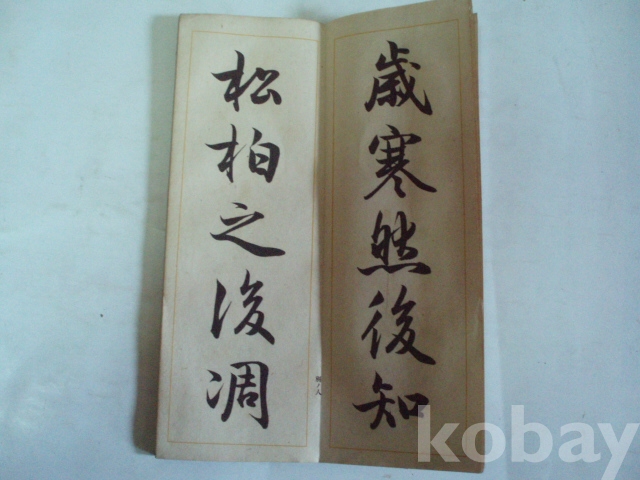 歲寒然後知
松柏之後凋
kobay